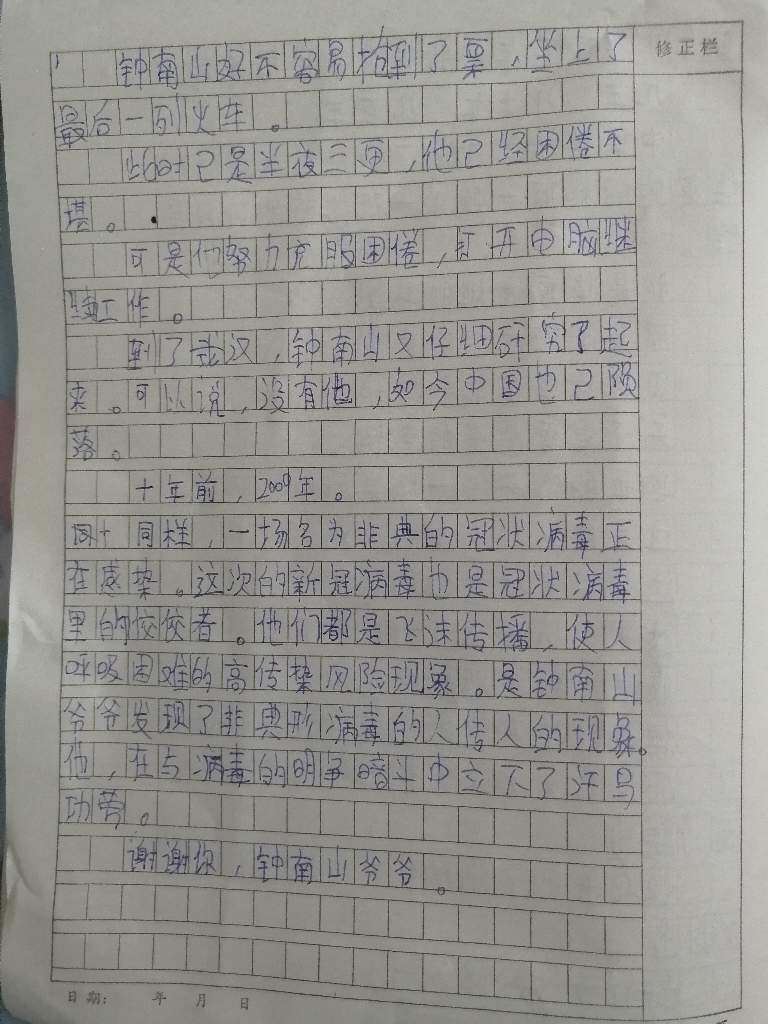 钟南山好不容易抢到了票，坐上了
修正栏
最后一列火车。
此时已是半夜三更，他已经困倦不
堪。
可是他努力克服困倦，打开电脑继
续工作。
到了武汉，钟南山又仔细研究了起
来。可以说，没有他，如今中国也已陨
落。
十年前，2009年。
同样，一场名为非典的冠状病毒正
在感染。这次的新冠病毒也是冠状病毒
里的佼佼者。他们都是飞沫传播，使人
呼吸困难的高传染风险现象。是钟南山
爷爷发现了非典形病毒的人传人的现象。
他，在与病毒的明争暗斗中立下了汗马
功劳。
谢谢你，钟南山爷爷。
日期： 年 月 日